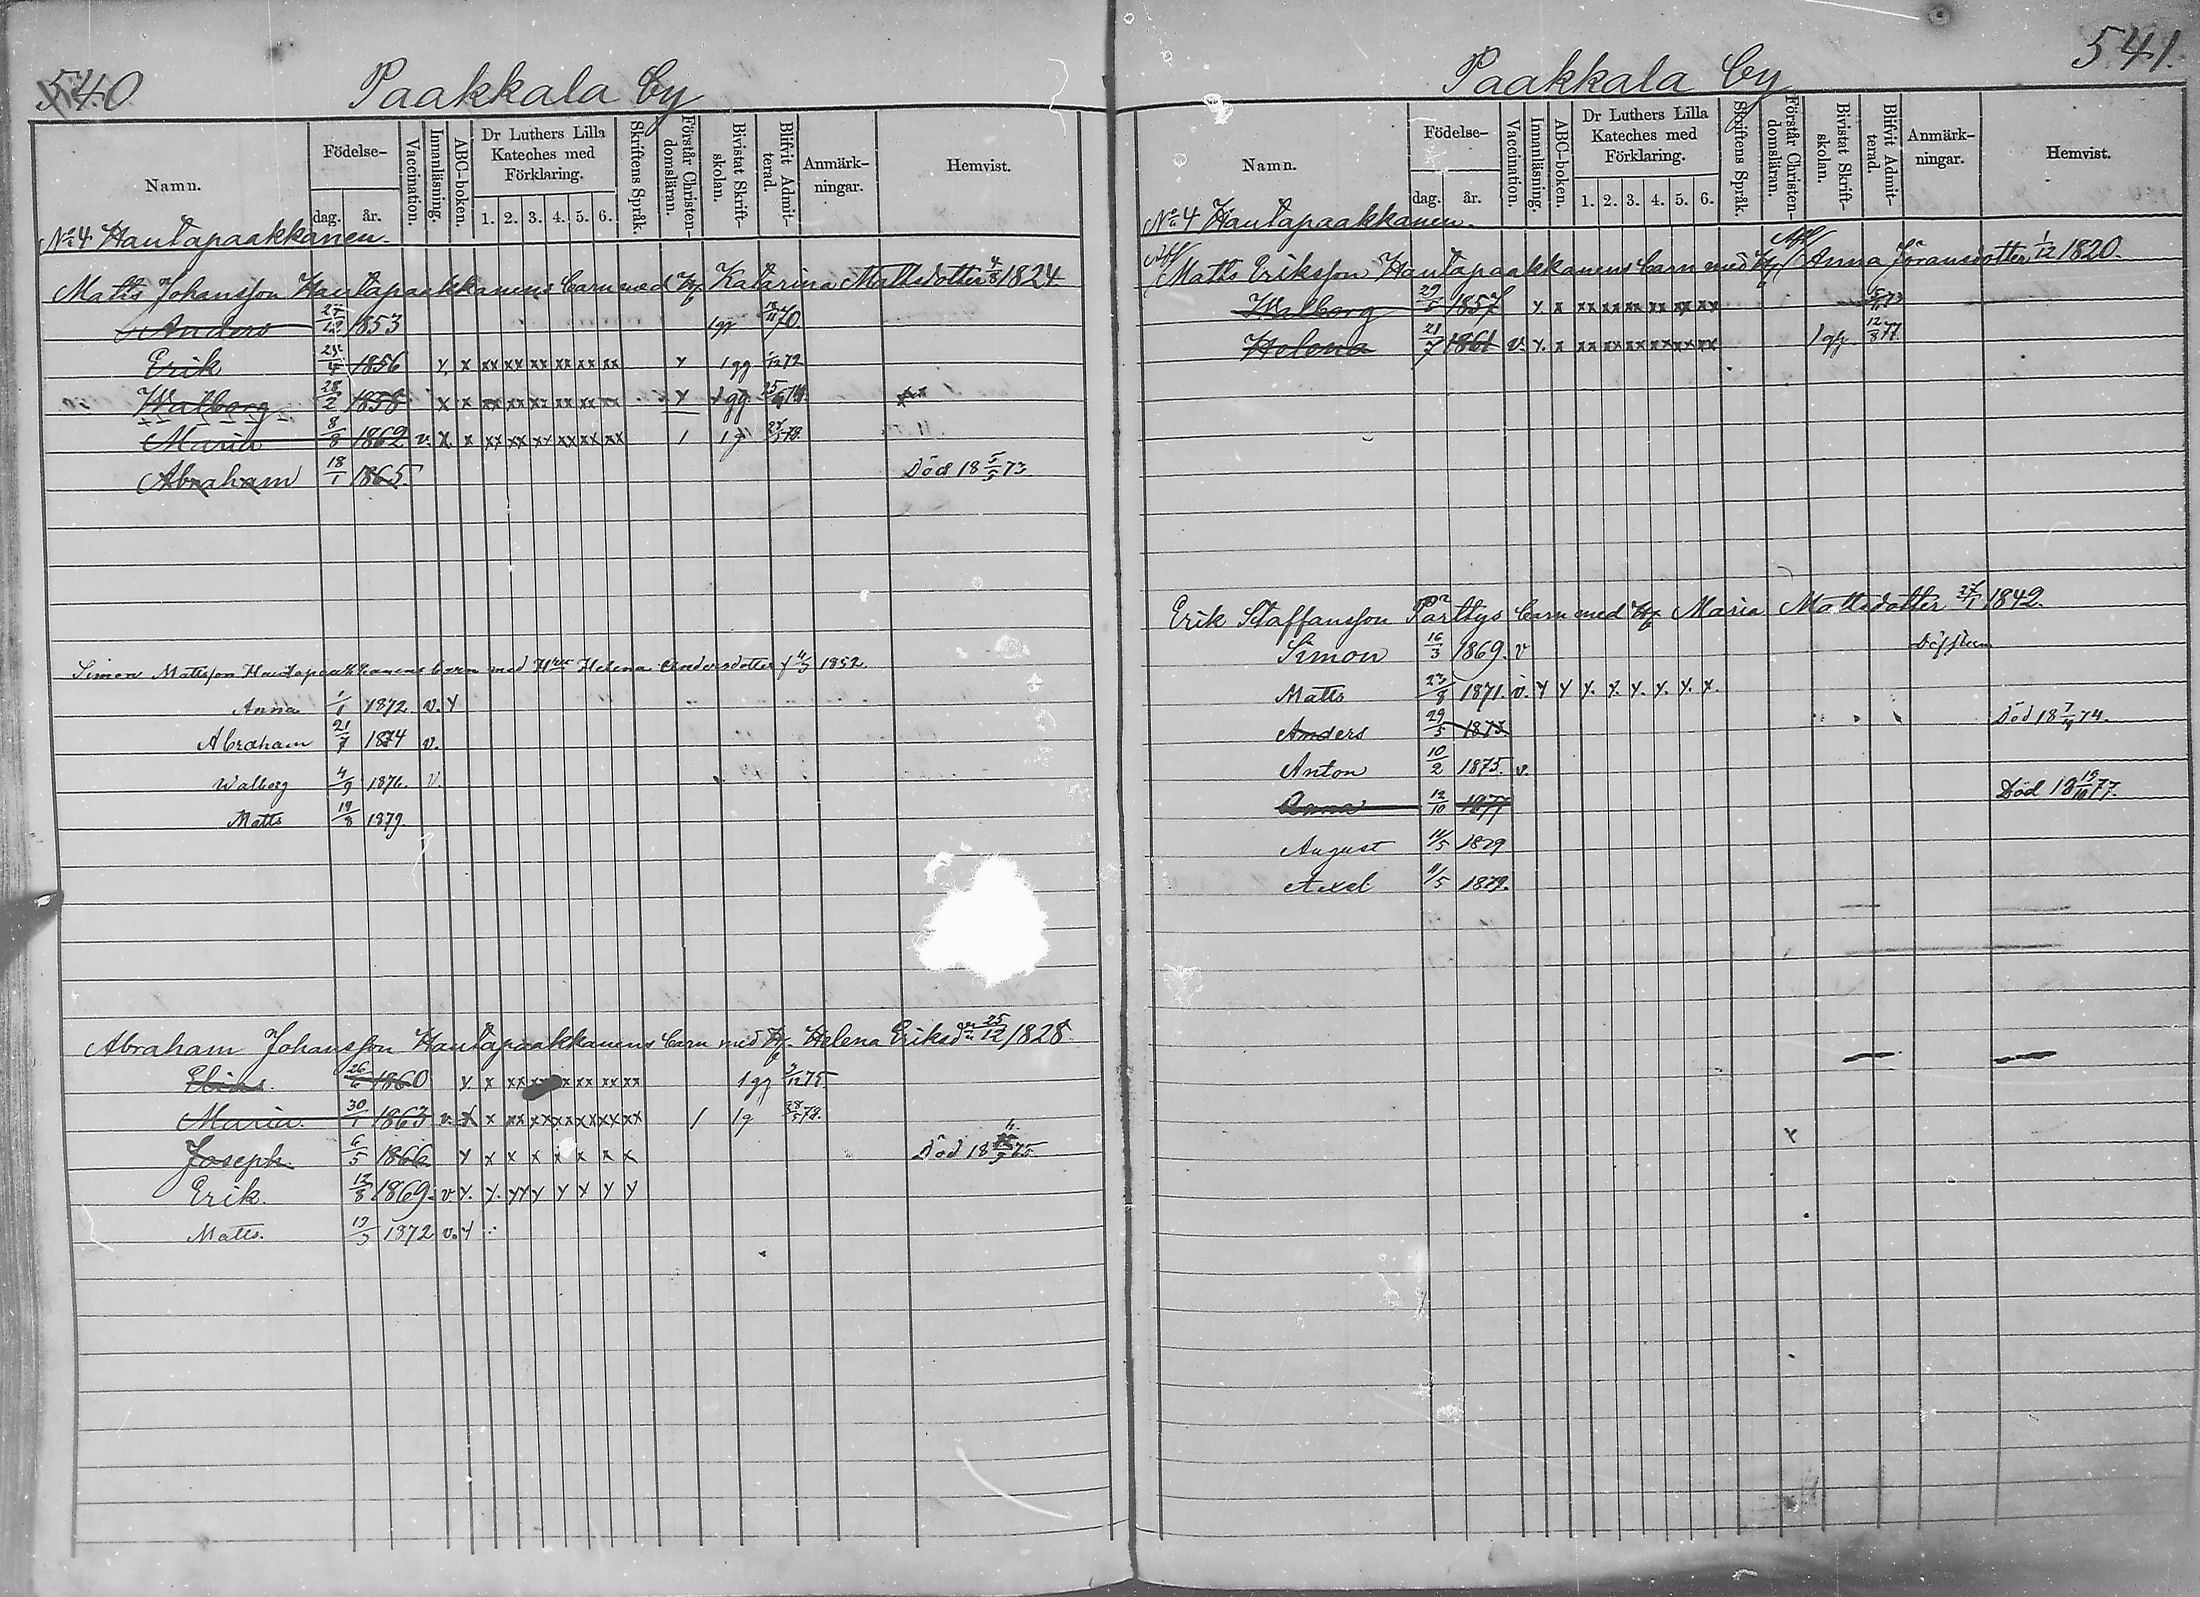 540.
Paakkala by
Namn. Födelse- dag. år. Vaccination. Innanläsning. ABC-boken. Dr Luthers Lilla Kateches med Förklaring. 1. 2. 3. 4. 5. 6. Skriftens Språk. Förstår Christen-domsläran. Bivistat Skrift-skolan. Blifvit Admit-terad. Anmärk-ningar. Hemvist.
No 4 Hautapaakkanen.
Matts Johansson Hautapaakkanens barn med H. Katarina Mattsdotter 4/8 1824
Anders 1853 1gg 70.
Erik 25/4 1856 x x xx xx xx xx xx xx x 1gg 72
Walborg 28/2 1858 x x xx xx xx xx xx xx x 1gg
Maria 8/8 1862 v. x x xx xx xx xx xx xx 1 1g 78.
Abraham 18/1 1865. Död 18 5/5 73
Simon Mattsson Hautapaakkanens barn med Helena Andersdotter 1852.
Anna 1/1 1872 v. x
Abraham 21/7 1874 v.
Walborg 4/9 1876. v.
Matts 19/8 1879
Abraham Johansson Hautapaakkanens barn med H. Helena Eriksd 25/12 1828.
Elias 26/6 1860 x x xx xx xx xx xx xx 1gg 75
Maria. 30/1 1863 v. x x xx xx xx xx xx xx 1 1g 78.
Joseph. 6/5 1866 x x x x x x x x Död 18 75
Erik. 12/8 1869. v. x. x. xx x x x x x
Matts. 19/3 1872 v. x
541.
Paakkala by
Namn. Födelse- dag. år. Vaccination. Innanläsning. ABC-boken. Dr Luthers Lilla Kateches med Förklaring. 1. 2. 3. 4. 5. 6. Skriftens Språk. Förstår Christen-domsläran. Bivistat Skrift-skolan. Blifvit Admit-terad. Anmärk-ningar. Hemvist.
No 4 Hautapaakkanen.
Matts Eriksson Hautapaakkanens barn med H. Anna Göransdotter 1/12 1820.
Walborg 1857 x. x xx xx xx xx xx xx 73
Helena 21/7 1861 v. x. x xx xx xx xx xx xx 1gg. 12/8 77.
Erik Staffansson Parttys barn med H. Maria Mattsdotter 27/1 1842.
Simon 16/3 1869. v
Matts 23/8 1871. v. x x x. x. x. x. x. x.
Anders 29/5 1873. Död 18 74.
Anton 10/2 1875. v.
Anna 12/10 1877 Död 18 19/10 77.
August 11/5 1879
Axel 11/5 1879.
x